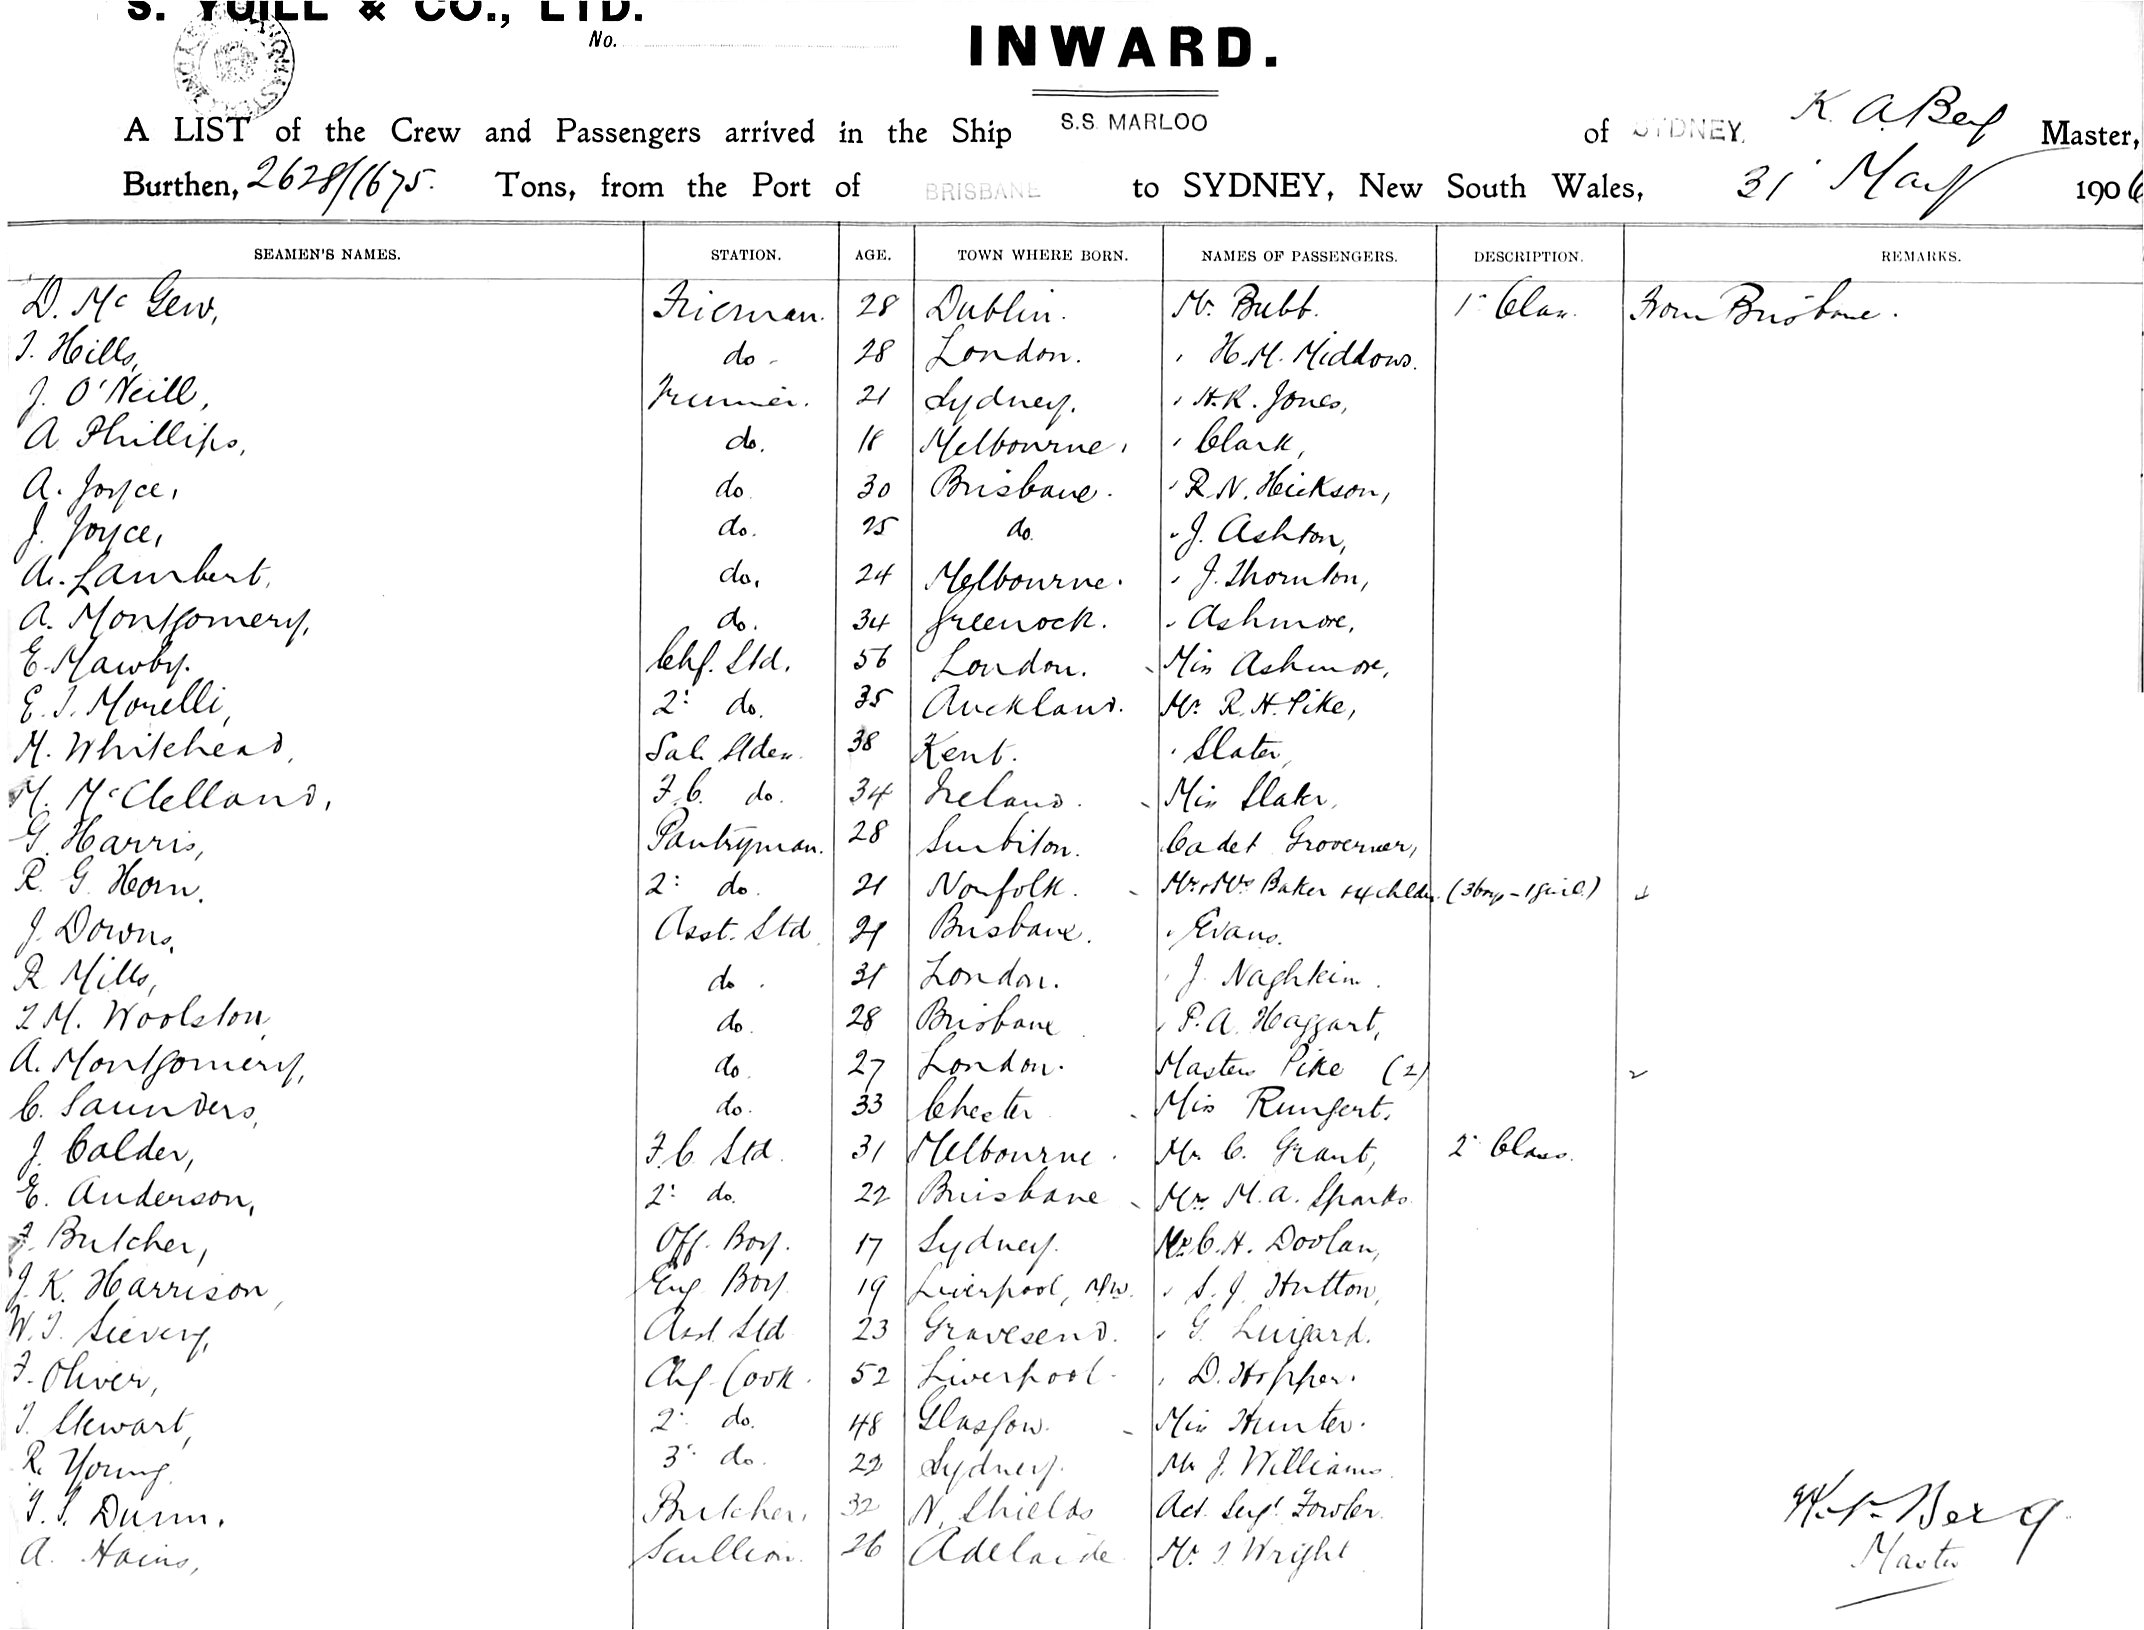 S. YUILL & CO., LTD.
No.
INWARD.
A LIST of the Crew and Passengers arrived in the Ship S.S. MARLOO of SYDNEY. K. A. Berg Master,
Burthen, 2628/1675. Tons, from the Port of BRISBANE to SYDNEY, New South Wales, 31 May 1906
SEAMEN'S NAMES. STATION. AGE. TOWN WHERE BORN. NAMES OF PASSENGERS. DESCRIPTION. REMARKS.
D. McGew, Frieman. 28 Dublin. Mr. Bubb. 1 Class. From Brisbane.
T. Hills, do 28 London. H.M. Middows.
J. O'Neill, Trimmer. 21 Sydney. H.R. Jones,
A Phillips, do. 18 Melbourne. Clark,
A. Joyce, do 30 Brisbane. R.N. Hickson,
J. Joyce, do. 25 do. J. Ashton,
A. Lambert, do. 24 Melbourne. J. Thornton,
A. Montgomery, do. 34 Greenock. Ashmore,
E. Mawby. Chf. Std. 56 London. Miss Ashmore,
E. T. Morelli, 2: do. 35 Auckland. Mr. R.H. Pike,
M. Whitehead, Sal. Stdess. 38 Kent. Slater,
M. McClelland, F.C. do. 34 Ireland. Miss Slater,
G. Harris, Pantryman. 28 Surbiton. Cadet Groverner,
R. G. Horn. 2: do. 21 Norfolk. Mr & Mrs Baker & 4 childn. (3 boys - 1 girl)
J. Downs. Asst. Std 21 Brisbane. Evans.
R Mills, do. 31 London. J. Naghkin.
T M. Woolston do. 28 Brisbane P. A. Haggart,
A. Montgomery, do. 27 London. Masters Pike (2)
C. Saunders, do. 33 Chester Miss Rungert.
J. Calder, F.C. Std. 31 Melbourne. Mr. C. Grant, 2 Class.
E. Anderson, 2: do. 22 Brisbane Mrs M. A. Sparks
F. Butcher, Off. Boy. 17 Sydney. Mr. C. H. Doolan,
J. K. Harrison, Eng Boy. 19 Liverpool, NSW. S. J. Hutton,
W. T. Sievery, Asst Std 23 Gravesend. G. Luigard.
F. Oliver, Chf. Cook. 52 Liverpool. D. Hopper.
T. Stewart, 2: do. 48 Glasgow. Miss Hunter.
R. Young. 3: do. 22 Sydney. Mr J. Williams.
T. S. Dunn. Butcher, 32 N. Shields Act. Sergt. Fowler.
A. Hains, Scullion. 26 Adelaide Mr. T. Wright
Berg
Master